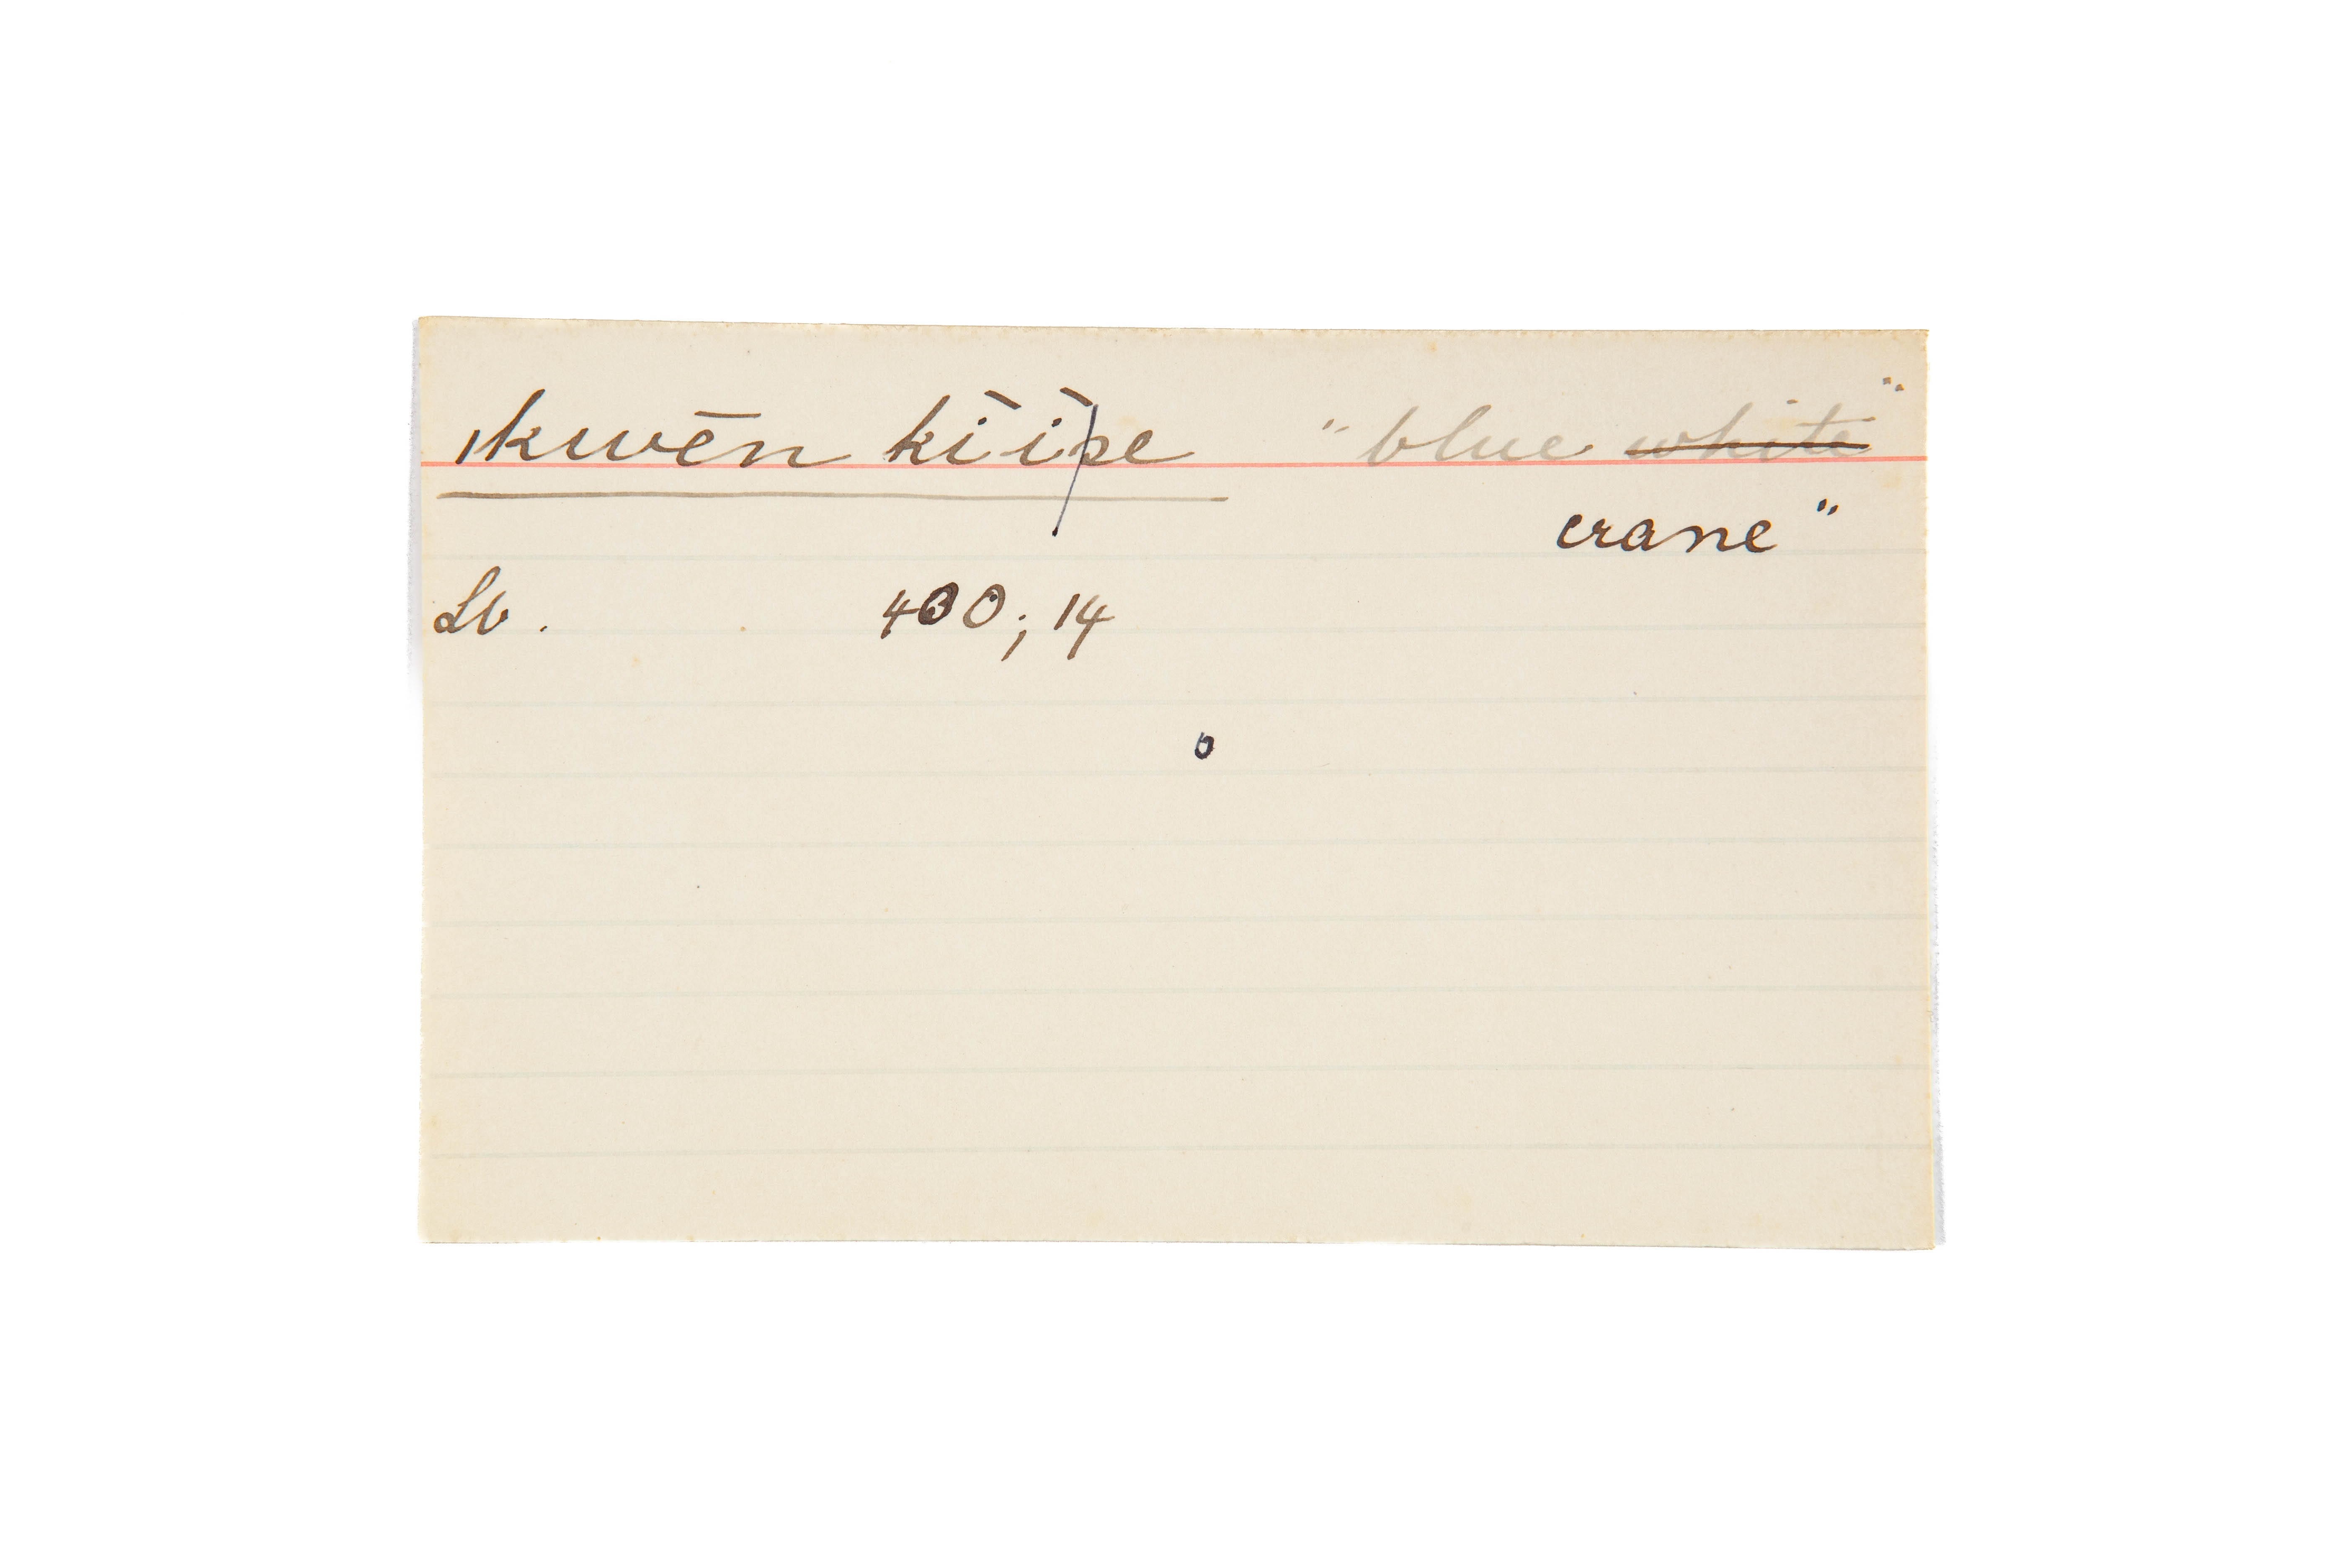 ıkwēn kī'ī'pe "blue white"
crane"
Lb. 430; 14